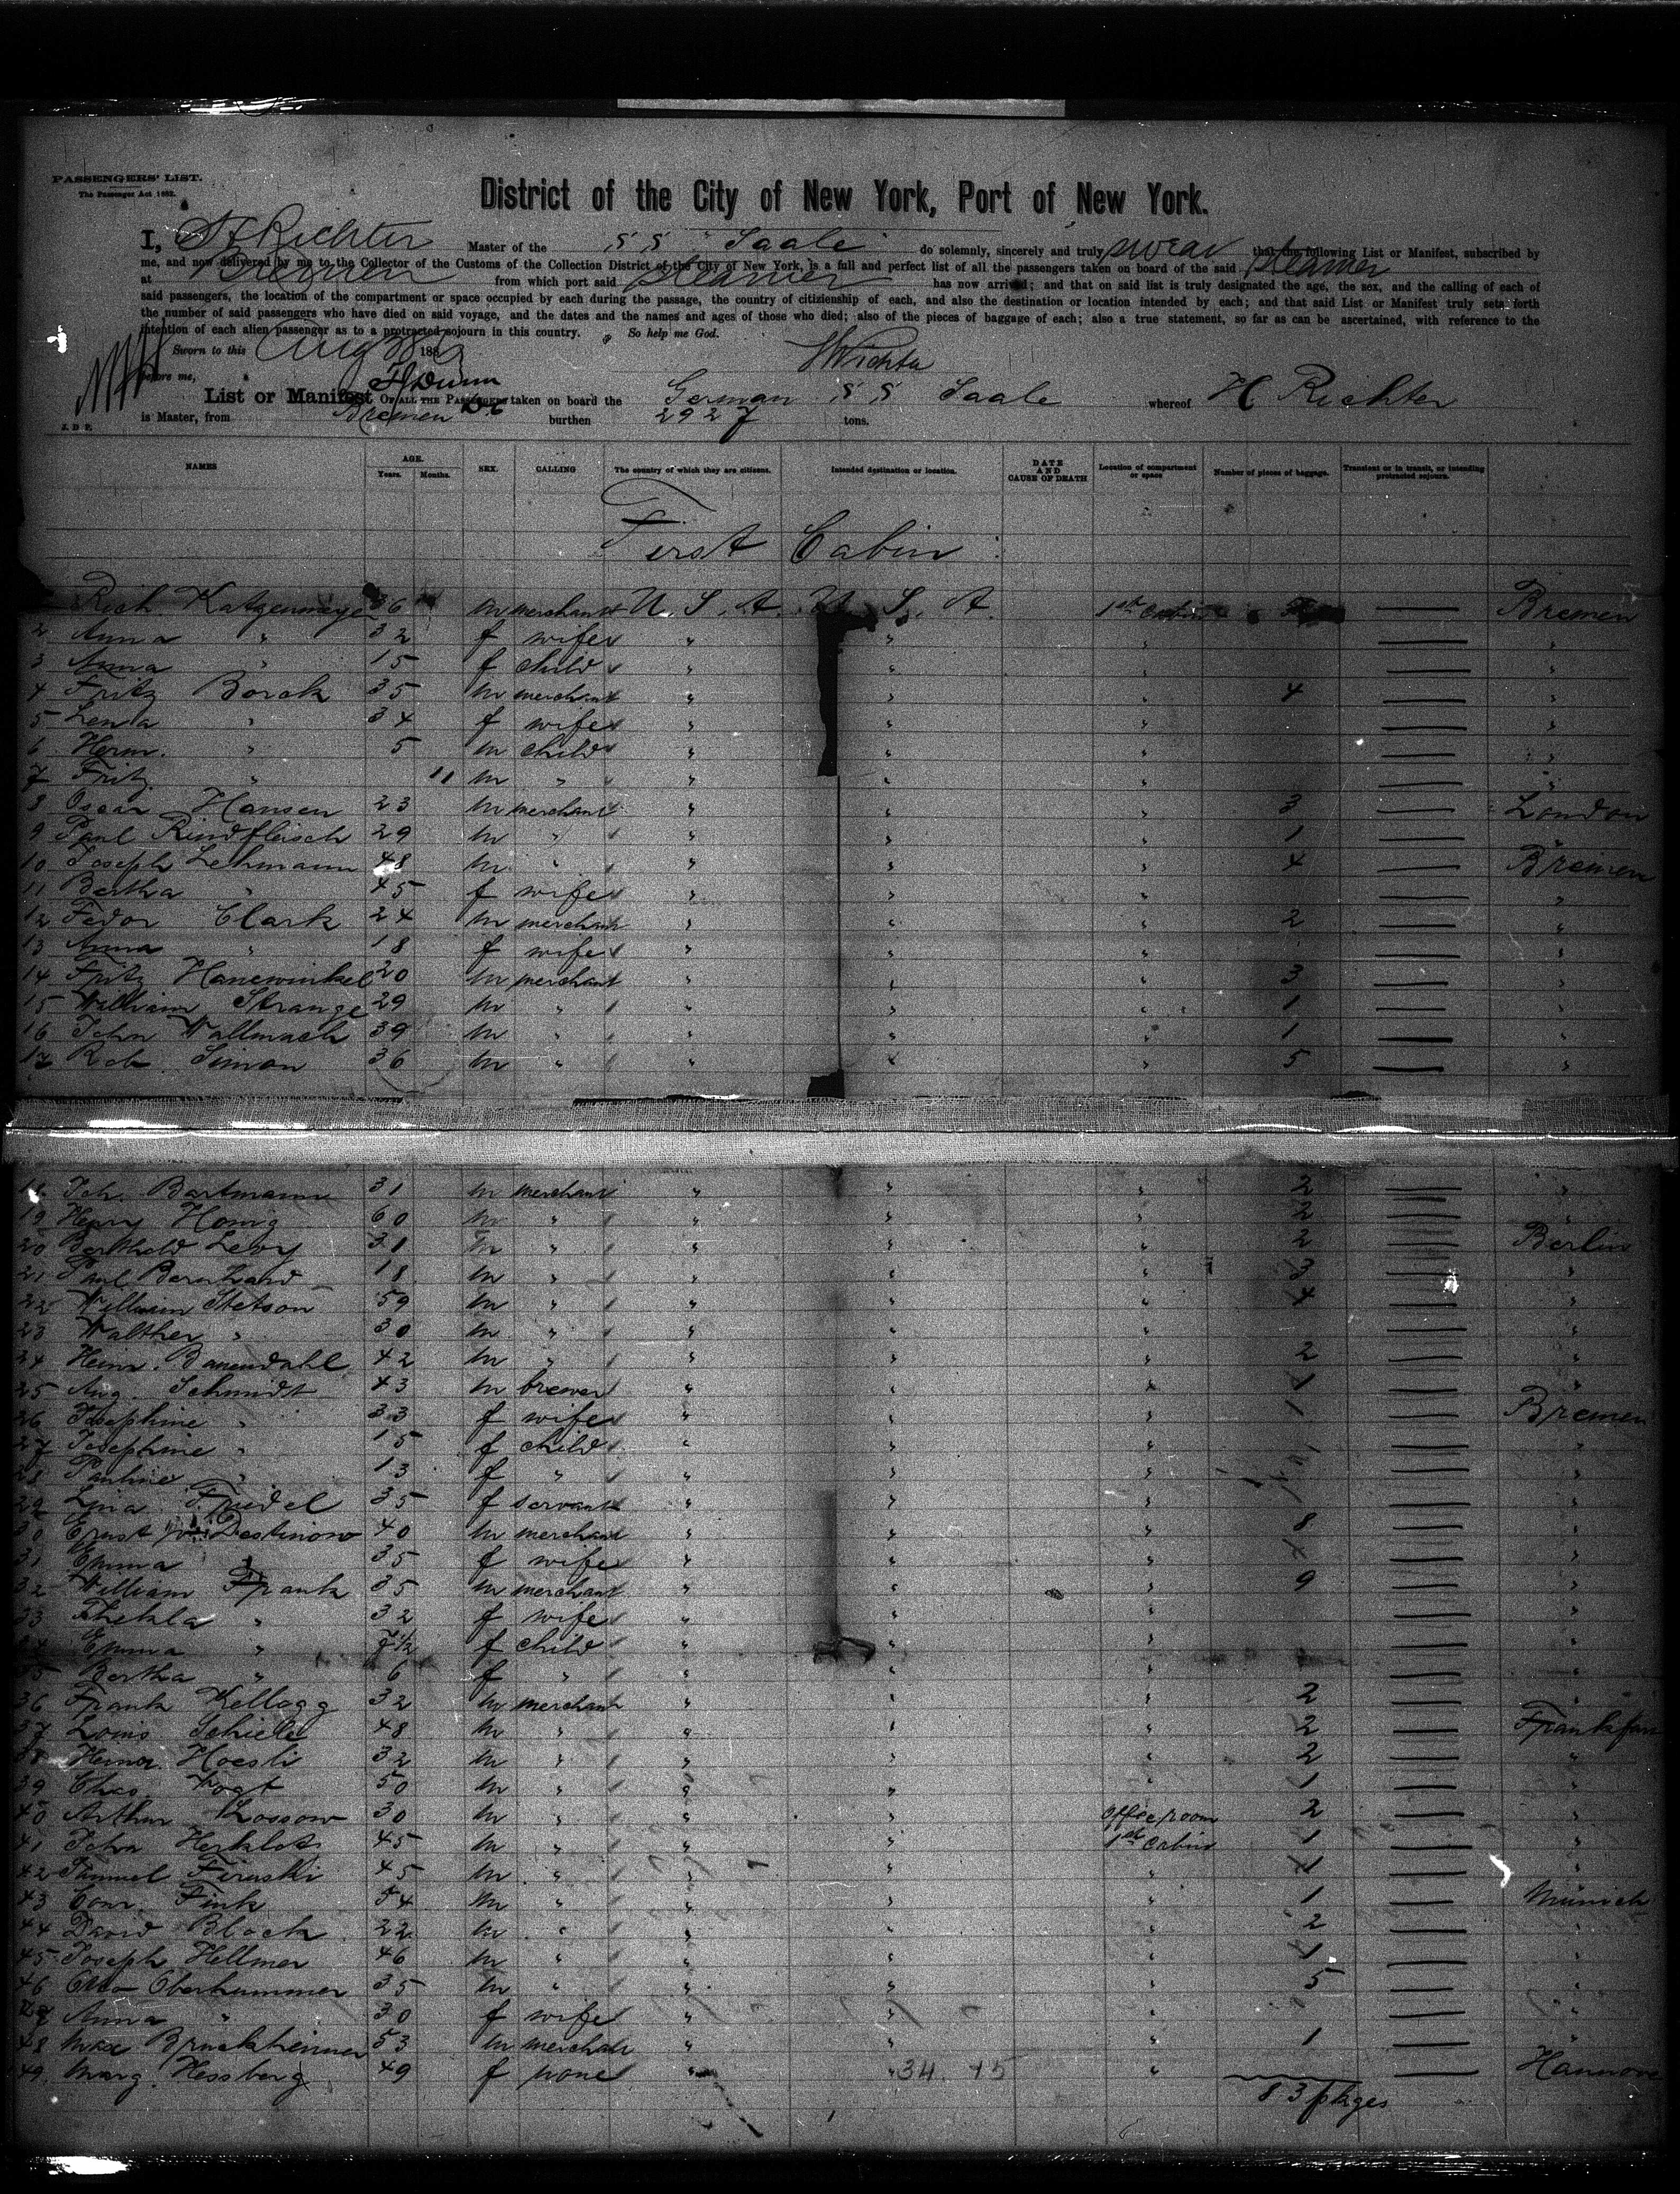 PASSENGERS' LIST.
The Passenger Act 1882.
District of the City of New York, Port of New York.
I, H Richter Master of the SS "Saale" do solemnly, sincerely and truly swear that the following List or Manifest, subscribed by
me, and now delivered by me to the Collector of the Customs of the Collection District of the City of New York, is a full and perfect list of all the passengers taken on board of the said steamer
at Bremen from which port said steamer has now arrived; and that on said list is truly designated the age, the sex, and the calling of each of
said passengers, the location of the compartment or space occupied by each during the passage, the country of citizienship of each, and also the destination or location intended by each; and that said List or Manifest truly sets forth
the number of said passengers who have died on said voyage, and the dates and the names and ages of those who died; also of the pieces of baggage of each; also a true statement, so far as can be ascertained, with reference to the
intention of each alien passenger as to a protracted sojourn in this country. So help me God.
Sworn to this Aug 188 HRichter
before me,
List or Manifest OF ALL THE PASSENGERS taken on board the German SS Saale whereof H Richter
is Master, from Bremen burthen 2927 tons.
J. D P.
NAMES AGE. Years. Months. SEX. CALLING The country of which they are citizens. Intended destination or location. DATE AND CAUSE OF DEATH Location of compartment or space Number of pieces of baggage. Transient or in transit, or intending protracted sojourn.
First Cabin
Rich. Katzenmeyer 36 m merchant U. S. A. U. S. A. 1st Cabin — Bremen
2 Anna " 32 f wife " " " — "
3 Anna " 15 f child " " " — "
4 Fritz Borak 35 m merchant " " " 4 — "
5 Lena " 34 f wife " " " — "
6 Herm. " 5 m child " " " — "
7 Fritz " 11 m " " " " — "
8 Oscar Hansen 23 m merchant " " " 3 — London
9 Paul Rindfleisch 29 m " " " " 1 — "
10 Joseph Lehmann 48 m " " " " 4 — Bremen
11 Bertha " 45 f wife " " " — "
12 Fedor Clark 24 m merchant " " " 2 — "
13 Anna " 18 f wife " " " — "
14 Fritz Hanewinkel 20 m merchant " " " 3 — "
15 William Strange 29 m " " " " 1 — "
16 John Wallmach 39 m " " " " 1 — "
17 Rob. Simon 36 m " " " " 5 — "
18 Joh. Bartmann 31 m merchant " " " 2 — "
19 Henry Honig 60 m " " " " 2 — "
20 Berthold Levy 31 m " " " " 2 — Berlin
21 Paul Bernhard 18 m " " " " 3 — "
22 William Stetson 59 m " " " " 4 — "
23 Walther " 30 m " " " " — "
24 Heinr. Banendahl 42 m " " " " 2 — "
25 Aug. Schmidt 43 m brewer " " " 1 — "
26 Josephine " 33 f wife " " " 1 — Bremen
27 Josephine " 15 f child " " " — "
28 Pauline " 13 f " " " " — "
29 Lina Friedel 35 f servant " " " 1 — "
30 Ernst v. Destinon 40 m merchant " " " 8 — "
31 Emma " 35 f wife " " " — "
32 William Frank 35 m merchant " " " 9 — "
33 Thekla " 32 f wife " " " — "
34 Emma " 7 1/2 f child " " " — "
35 Bertha " 6 f " " " " — "
36 Frank Kellogg 32 m merchant " " " 2 — "
37 Louis Schiele 48 m " " " " 2 — Frankfurt
38 Heinr. Hoesli 32 m " " " " 2 — "
39 Chas Vogt 50 m " " " " 1 — "
40 Arthur Kossow 30 m " " " office room 2 — "
41 John Herklots 45 m " " " 1st Cabin 1 — "
42 Samuel Firuski 45 m " " " " 1 — "
43 Conr. Fink 54 m " " " " 1 — Munich
44 David Block 22 m " " " " 2 — "
45 Joseph Hellmer 46 m " " " " 1 — "
46 Otto Oberhummer 35 m " " " " 5 — "
47 Anna " 30 f wife " " " — "
48 Max Bruckheimer 53 m merchant " " " 1 — "
49. Marg. Hessberg 49 f none " " 34 15 " — Hannover
83 pkges